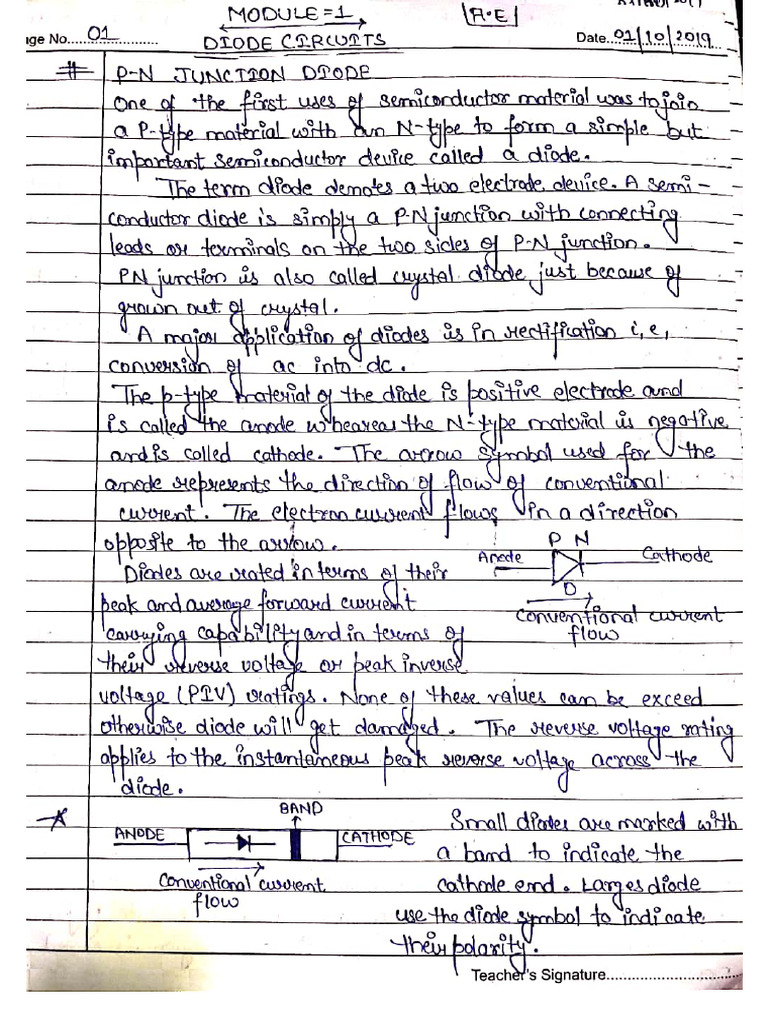 MODULE=1
|A.E|
Page No. 01
DIODE CIRCUITS
Date. 01/10/2019
# P-N JUNCTION DIODE
One of the first uses of semiconductor material was to join
a P-type material with an N-type to form a simple but
important semiconductor device called a diode.
The term diode demotes a two electrode device. A semi-
conductor diode is simply a P-N junction with connecting
leads or terminals on the two sides of P-N junction.
PN junction is also called crystal diode just because of
grown out of crystal.
A major application of diodes is in rectification i,e,
conversion of ac into dc.
The p-type material of the diode is positive electrode and
is called the anode wheareas the N-type material is negative
and is called cathode. The arrow symbol used for the
anode represents the direction of flow of conventional
current. The electron current flows in a direction
opposite to the arrow.
P N
Anode
Cathode
D
Conventional current
flow
Diodes are rated in terms of their
peak and average forward current
carrying capability and in terms of
their reverse voltage or peak inverse
voltage (PIV) ratings. None of these values can be exceed
otherwise diode will get damaged. The reverse voltage rating
applies to the instantaneous peak reverse voltage across the
diode.
BAND
ANODE
CATHODE
Conventional current
flow
Small diodes are marked with
a band to indicate the
cathode end. Larges diode
use the diode symbol to indicate
their polarity.
Teacher's Signature